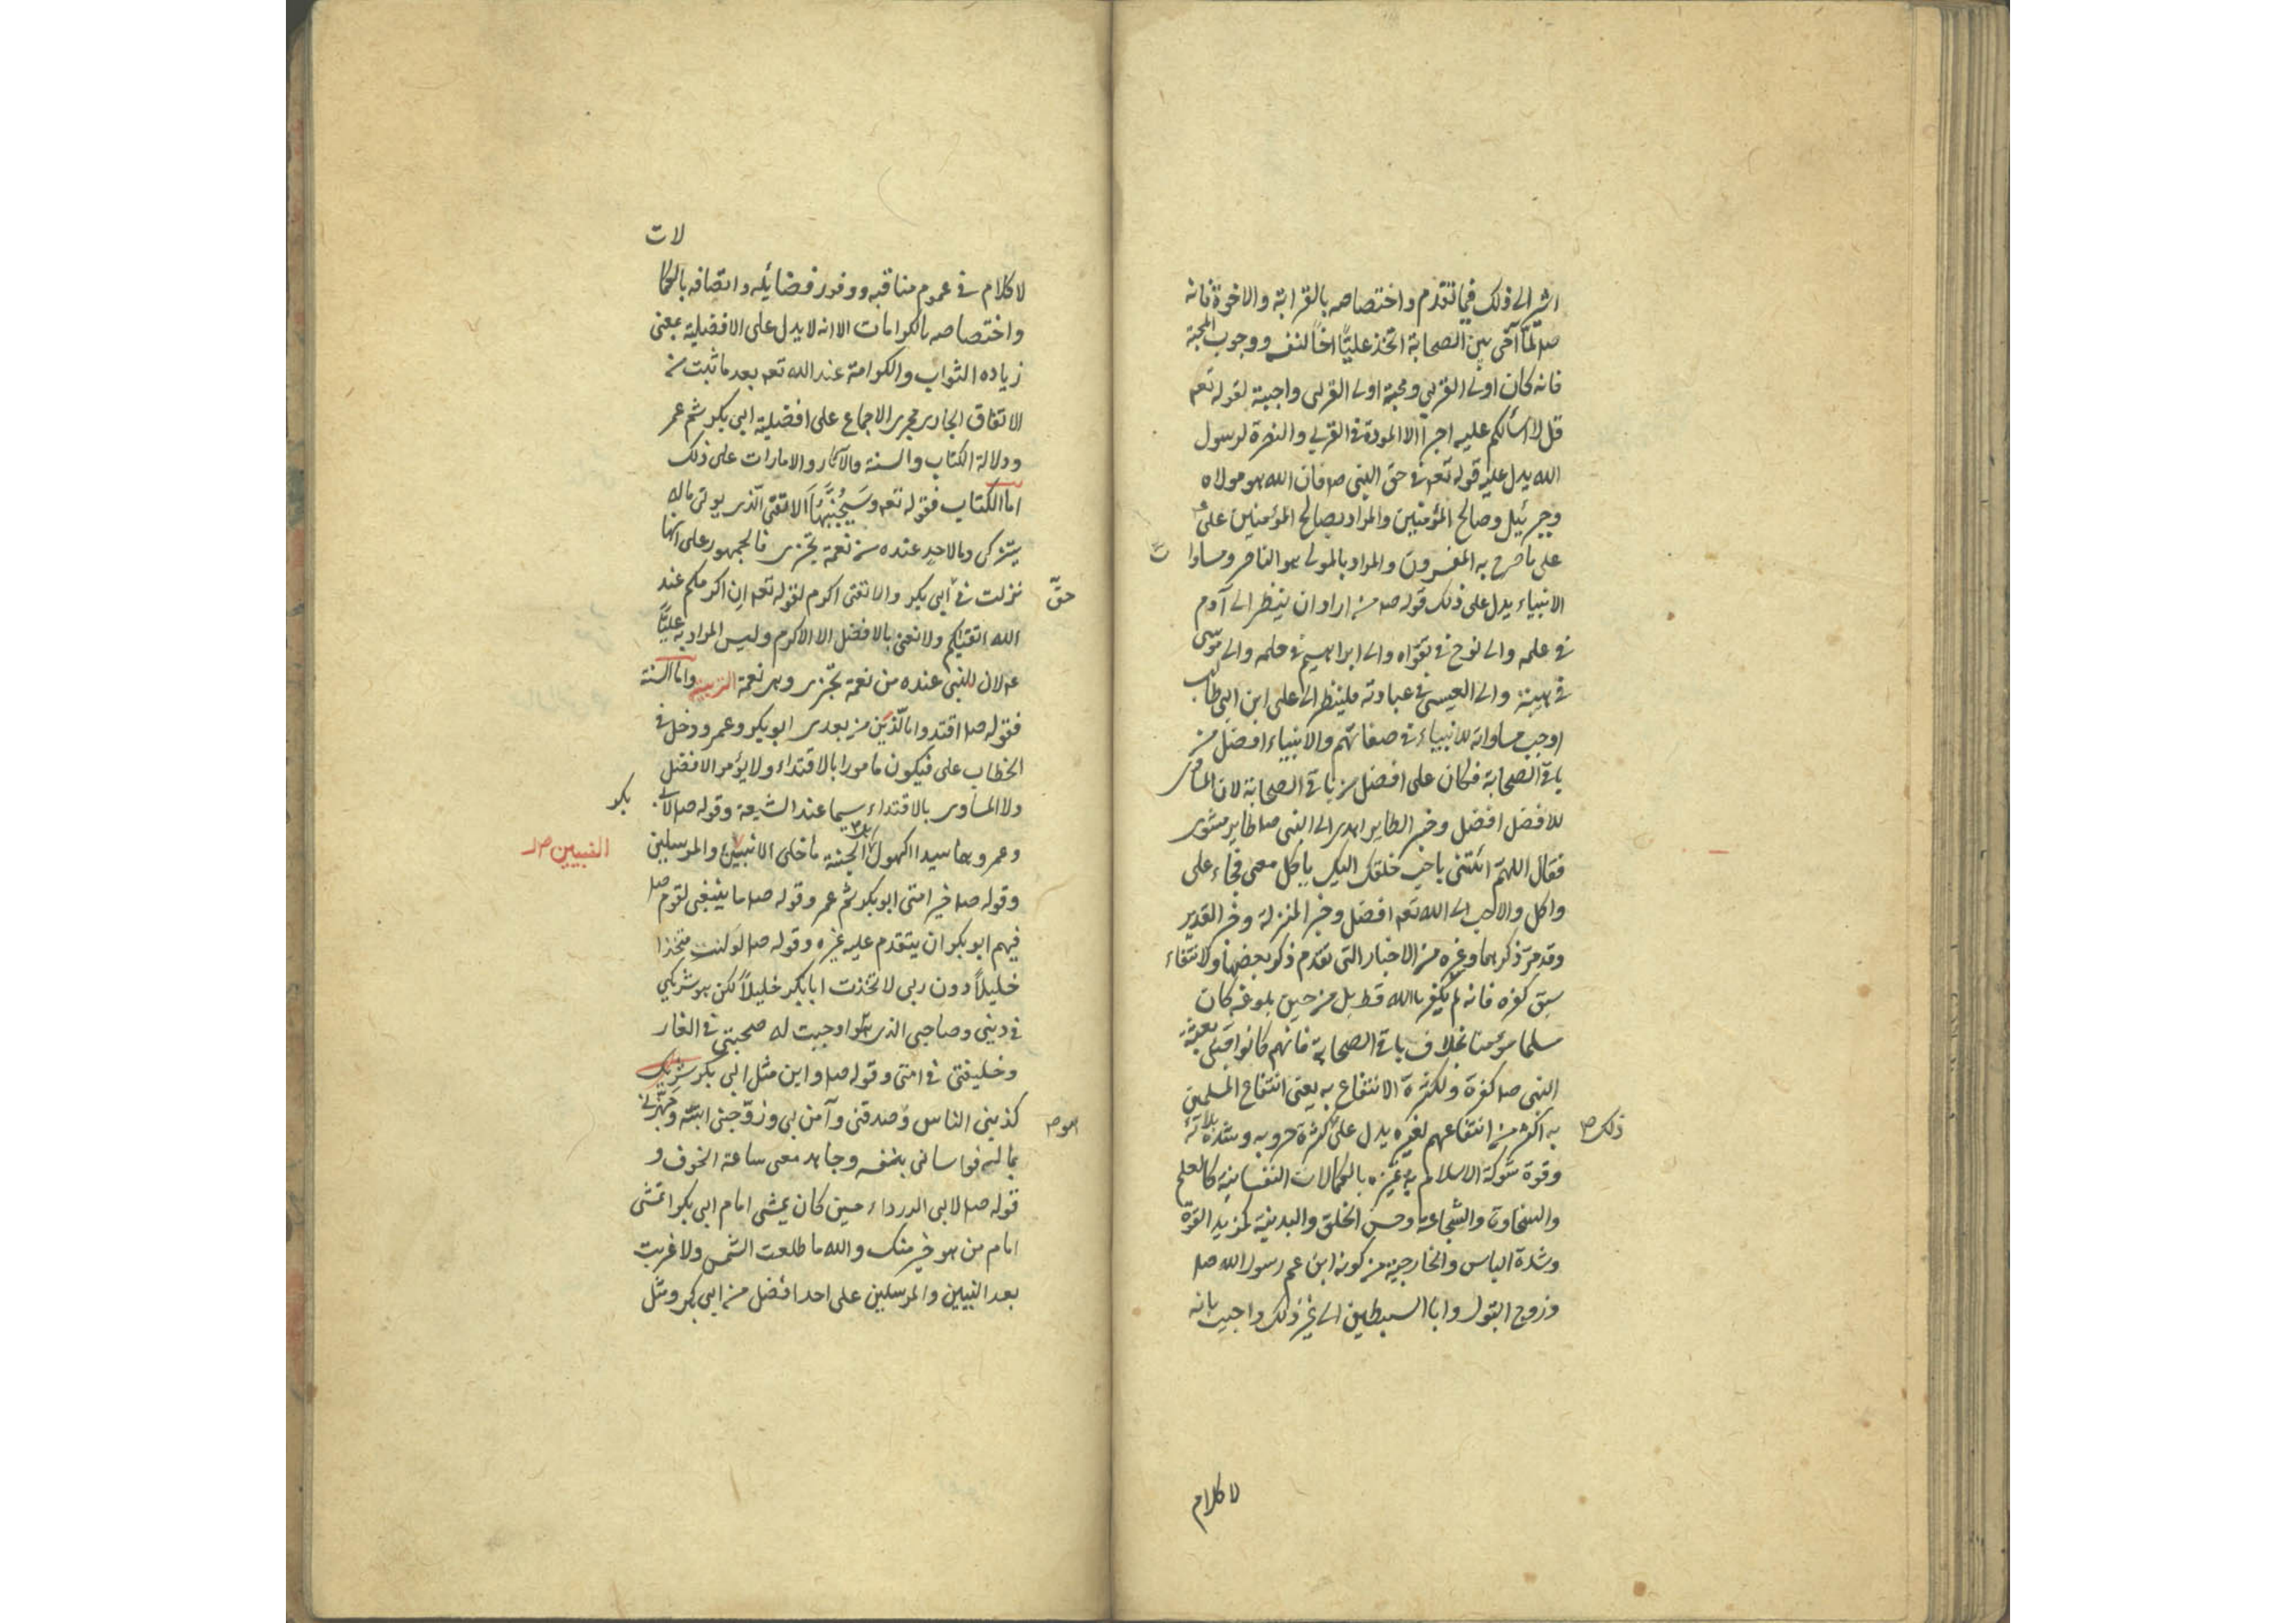 اشير الى ذلك فيما تقدم واختصاصه بالقرابة والاخوة فانه
صلم لمّا آخى بين الصحابة اتخذ عليًّا اخاً لنفسه ووجوب المحبة
فانه كان اولى القربى ومحبة اولى القربى واجبة لقوله تعه
قل لا اسألكم عليه اجراً الا المودة فى القربى والنصرة لرسول
الله يدل عليه قوله تعه فى حق النبى صلم فان الله هو مولاه
وجبرئيل وصالح المؤمنين والمراد بصالح المؤمنين على
على ما صرح به المفسرون والمراد بالمولى هو الناصر ومساوا
ت
الانبياء يدل على ذلك قوله صلم من اراد ان ينظر الى آدم
فى علمه والى نوح فى تقواه والى ابراهيم فى حلمه والى موسى
فى هيبته والى العيسى فى عبادته فلينظر الى على ابن ابى طالب
اوجب مساواته للانبياء فى صفاتهم والانبياء افضل من
باقى الصحابة فكان على افضل من باقى الصحابة لان المساوى
للافضل افضل وخبر الطاير اهدى الى النبى صلم طاير مشوى
فقال اللهم ائتنى باحب خلقك اليك يأكل معى فجاء على
واكل والاحب الى الله تعه افضل وخبر المنزلة وخبر الغدير
وقد مرّ ذكرهما وغيره من الاخبار التى تقدم ذكر بعضها ولانتفاء
سبق كفره فانه لم يكفر بالله قط بل من حين بلوغه كان
مسلما مؤمنا بخلاف باقى الصحابة فانهم كانوا قبل بعثة
النبى صلم كفرة ولكثرة الانتفاع به يعنى انتفاع المسلمين
به اكثر من انتفاعهم لغيره يدل على كثرة حروبه وشدة بلائه
ذلك صلم
وقوة شوكة الاسلام به وتميزه بالكمالات النفسانية كالعلم
والسخاوة والشجاعة وحسن الخلق والبدنية كمزيد القوة
وشدة الباس والخارجية من كونه ابن عم رسول الله صلم
وزوج البتول وابا السبطين الى غير ذلك واجيب بانه
لا كلام
لات
لا كلام فى عموم مناقبه ووفور فضائله واتصافه بالكما
واختصاصه بالكرامات الا انه لا يدل على الافضلية بمعنى
زياده الثواب والكرامة عند الله تعه بعد ما ثبت من
الاتفاق الجارى مجرى الاجماع على افضلية ابى بكر ثم عمر
ودلالة الكتاب والسنة والآثار والامارات على ذلك
اما الكتاب فقوله تعه وَسَيُجَنَّبُهَا الاتقى الّذى يوتى ماله
يتزكى وما لاحد عنده من نعمة تجزى فالجمهور على انها
نزلت فى ابى بكر والاتقى اكرم لقوله تعه ان اكرمكم عند
حقّ
الله اتقيكم ولا نعنى بالافضل الا الاكرم وليس المراد به عليًّا
لان للنبى عنده من نعمة تجزى وهى نعمة التربية واما السنة
فقوله صلم اقتدوا بالّذَين من بعدى ابو بكر وعمر ودخل فى
الخطاب على فيكون مأمورا بالاقتداء ولا يؤمر الافضل
ولا المساوى بالاقتداء سيما عند الشيعة وقوله صلم لابى
بكر
وعمر وهما سيدا كهول اهل الجنة ما خلى الانبيين والمرسلين
النبيين صلم
وقوله صلم خير امتى ابو بكر ثم عمر وقوله صلم ما ينبغى لقوم
فيهم ابو بكر ان يتقدم عليه غيره وقوله صلم لو كنت متخذا
خليلاً دون ربى لاتخذت ابا بكر خليلاً لكن هو شريكى
فى دينى وصاحبى الذى اوجبت له صحبتى فى الغار
وخليفتى فى امتى وقوله صلم واين مثل ابى بكر
كذبنى الناس وصدقنى وآمن بى وزوّجنى ابنته وجهّزنى
بماله فواسانى بنفسه وجاهد معى ساعة الخوف و
قوله صلم لابى الدرداء حين كان يمشى امام ابى بكر اتمشى
امام من هو خير منك والله ما طلعت الشمس ولا غربت
بعد النبيين والمرسلين على احد افضل من ابى بكر ومثل